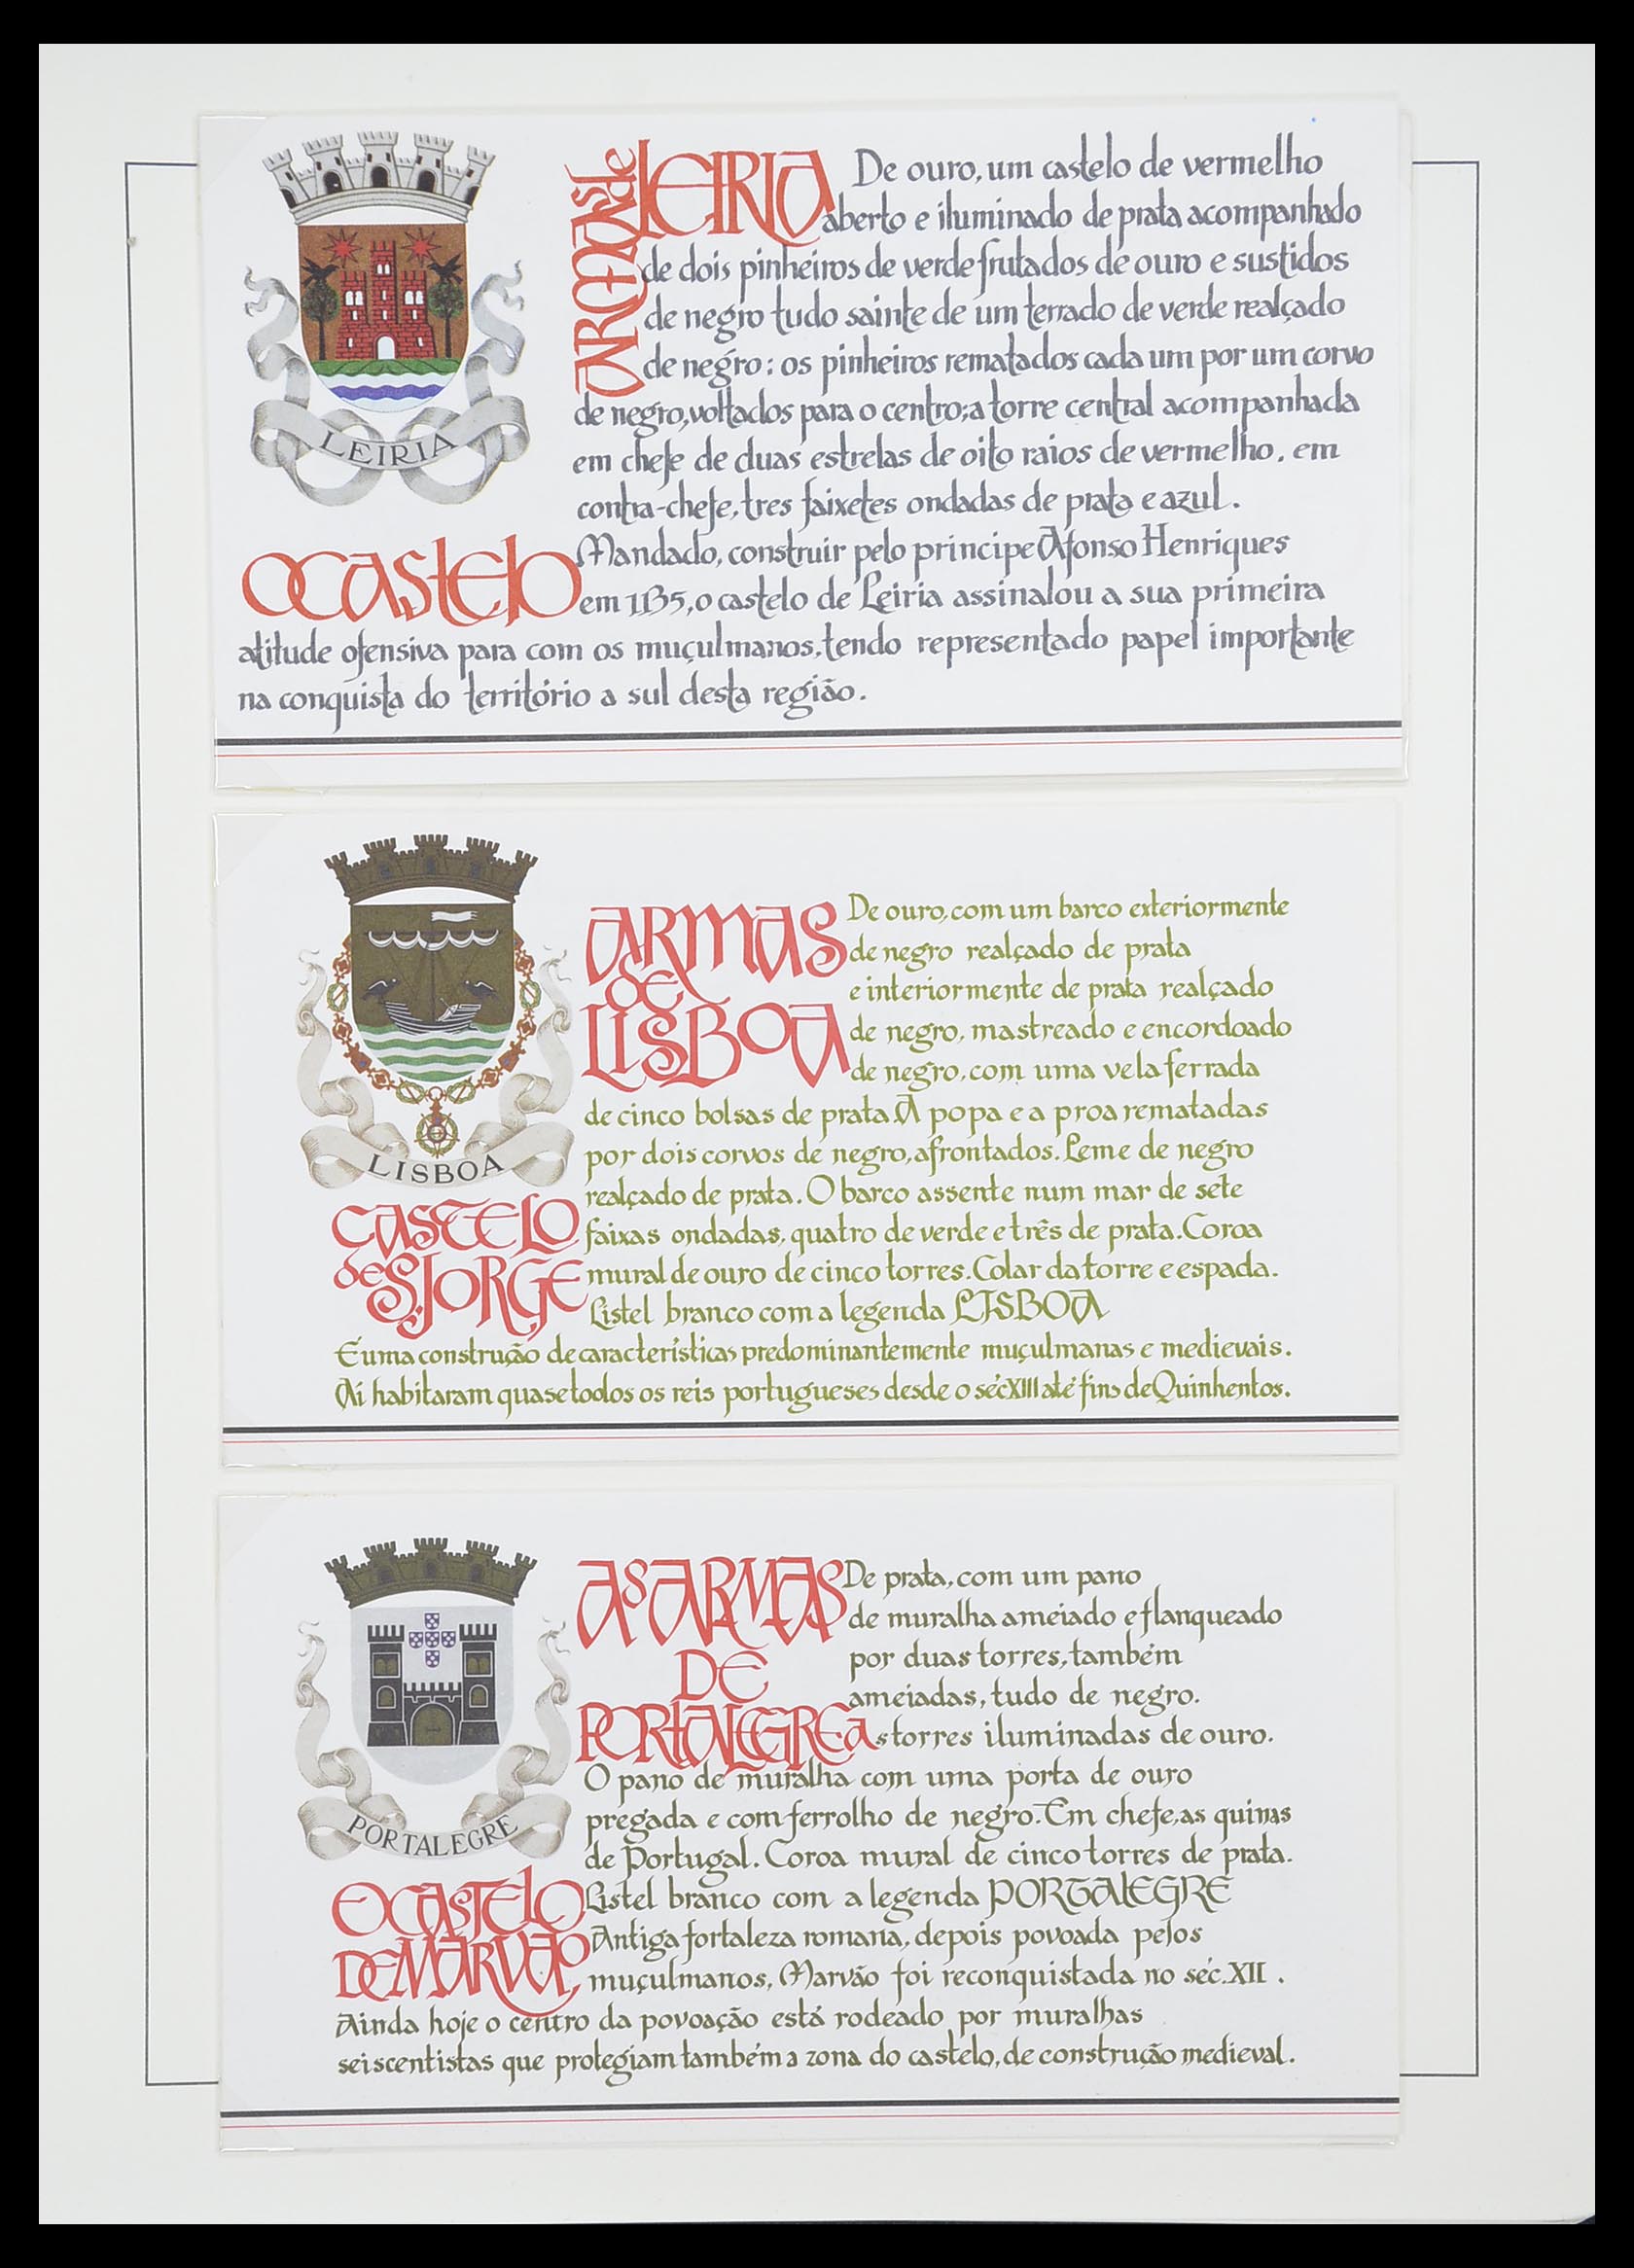 LEIRIA
AS ARMAS de LEIRIA
De ouro, um castelo de vermelho
aberto e iluminado de prata acompanhado
de dois pinheiros de verde frutados de ouro e sustidos
de negro tudo sainte de um terrado de verde realçado
de negro: os pinheiros rematados cada um por um corvo
de negro, voltados para o centro; a torre central acompanhada
em chefe de duas estrelas de oito raios de vermelho, em
contra-chefe, tres faixetes ondadas de prata e azul.
O CASTELO
Mandado, construir pelo principe Afonso Henriques
em 1135, o castelo de Leiria assinalou a sua primeira
atitude ofensiva para com os muçulmanos, tendo representado papel importante
na conquista do território a sul desta região.
LISBOA
ARMAS
DE
LISBOA
De ouro, com um barco exteriormente
de negro realçado de prata
e interiormente de prata realçado
de negro, mastreado e encordoado
de negro, com uma vela ferrada
de cinco bolsas de prata. A popa e a proa rematadas
por dois corvos de negro, afrontados. Leme de negro
realçado de prata. O barco assente num mar de sete
faixas ondadas, quatro de verde e três de prata. Coroa
mural de ouro de cinco torres. Colar da torre e espada.
Listel branco com a legenda LISBOA
CASTELO
de S. JORGE
É uma construção de características predominantemente muçulmanas e medievais.
Aí habitaram quase todos os reis portugueses desde o séc XIII até fins de Quinhentos.
PORTALEGRE
AS ARMAS
DE
PORTALEGRE
De prata, com um pano
de muralha ameiado e flanqueado
por duas torres, também
ameiadas, tudo de negro.
as torres iluminadas de ouro.
O pano de muralha com uma porta de ouro
pregada e com ferrolho de negro. Em chefe, as quinas
de Portugal. Coroa mural de cinco torres de prata.
Listel branco com a legenda PORTALEGRE
E O CASTELO
DE MARVÃO
Antiga fortaleza romana, depois povoada pelos
muçulmanos, Marvão foi reconquistada no séc. XII.
Ainda hoje o centro da povoação está rodeado por muralhas
seiscentistas que protegiam também a zona do castelo, de construção medieval.